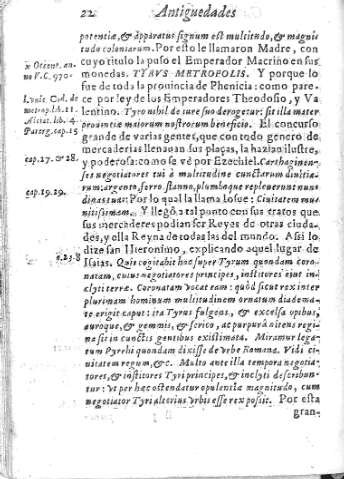 22 Antiguedades
potentiæ, & apparatus signum est multitudo, & magni
tudo coloniarum. Por esto le llamaron Madre, con
cuyo titulo la puso el Emperador Macrino en sus
monedas. TYRVS METROPOLIS. Y porque lo
fue de toda la provincia de Phenicia: como pare-
ce por ley de los Emperadores Theodosio, y Va-
lentino. Tyro nihil de iure suo derogetur: sit illa mater
provintiæ maiorum nostrorum beneficio. El concurso
grande de varias gentes, que con todo genero de
mercaderias llenauan sus plaças, la hazian ilustre,
y poderosa: como se vé por Ezechiel. Carthaginen-
ses negotiatores tui à multitudine cunctarum diuitia-
rum: argento, ferro, stanno, plumboque repleuerunt nun
dinas tuas: Por lo qual la llama Iosue: Ciuitatem mu-
nitissimam. Y llegò a tal punto con sus tratos que
sus mercaderes podian ser Reyes de otras ciuda-
des, y ella Reyna de todas las del mundo. Assi lo
dize san Hieronimo, explicando aquel lugar de
Isaias. Quis cogitabit hac super Tyrum quondam coro-
natam, cuius negotiatores principes, institores eius in-
clyti terræ. Coronatam vocat eam: quòd sicut rex inter
plurimam hominum multitudinem ornatum diadema-
te erigit caput: ita Tyrus fulgens, & excelsa opibus,
auroque, & gemmis, & serico, ac purpurâ nitens regi-
na sit in cunctis gentibus existimata. Miramur lega-
tum Pyrrhi quondam dixisse de vrbe Romana. Vidi ci-
uitatem regum, & c. Multo ante illa tempora negotia-
tores, & institores Tyri principes, & inclyti describun-
tur: vt per hæc ostendatur opulentiæ magnitudo, cum
negotiator Tyri alterius vrbis esse rex possit. Por esta
gran-
Orient. an-
no V.C. 970.
Cod. de
metrop. lib. 11.
Alciat. lib. 4.
Parerg. cap. 15
cap. 27. & 28.
cap. 19. 29.
c. 23. 8